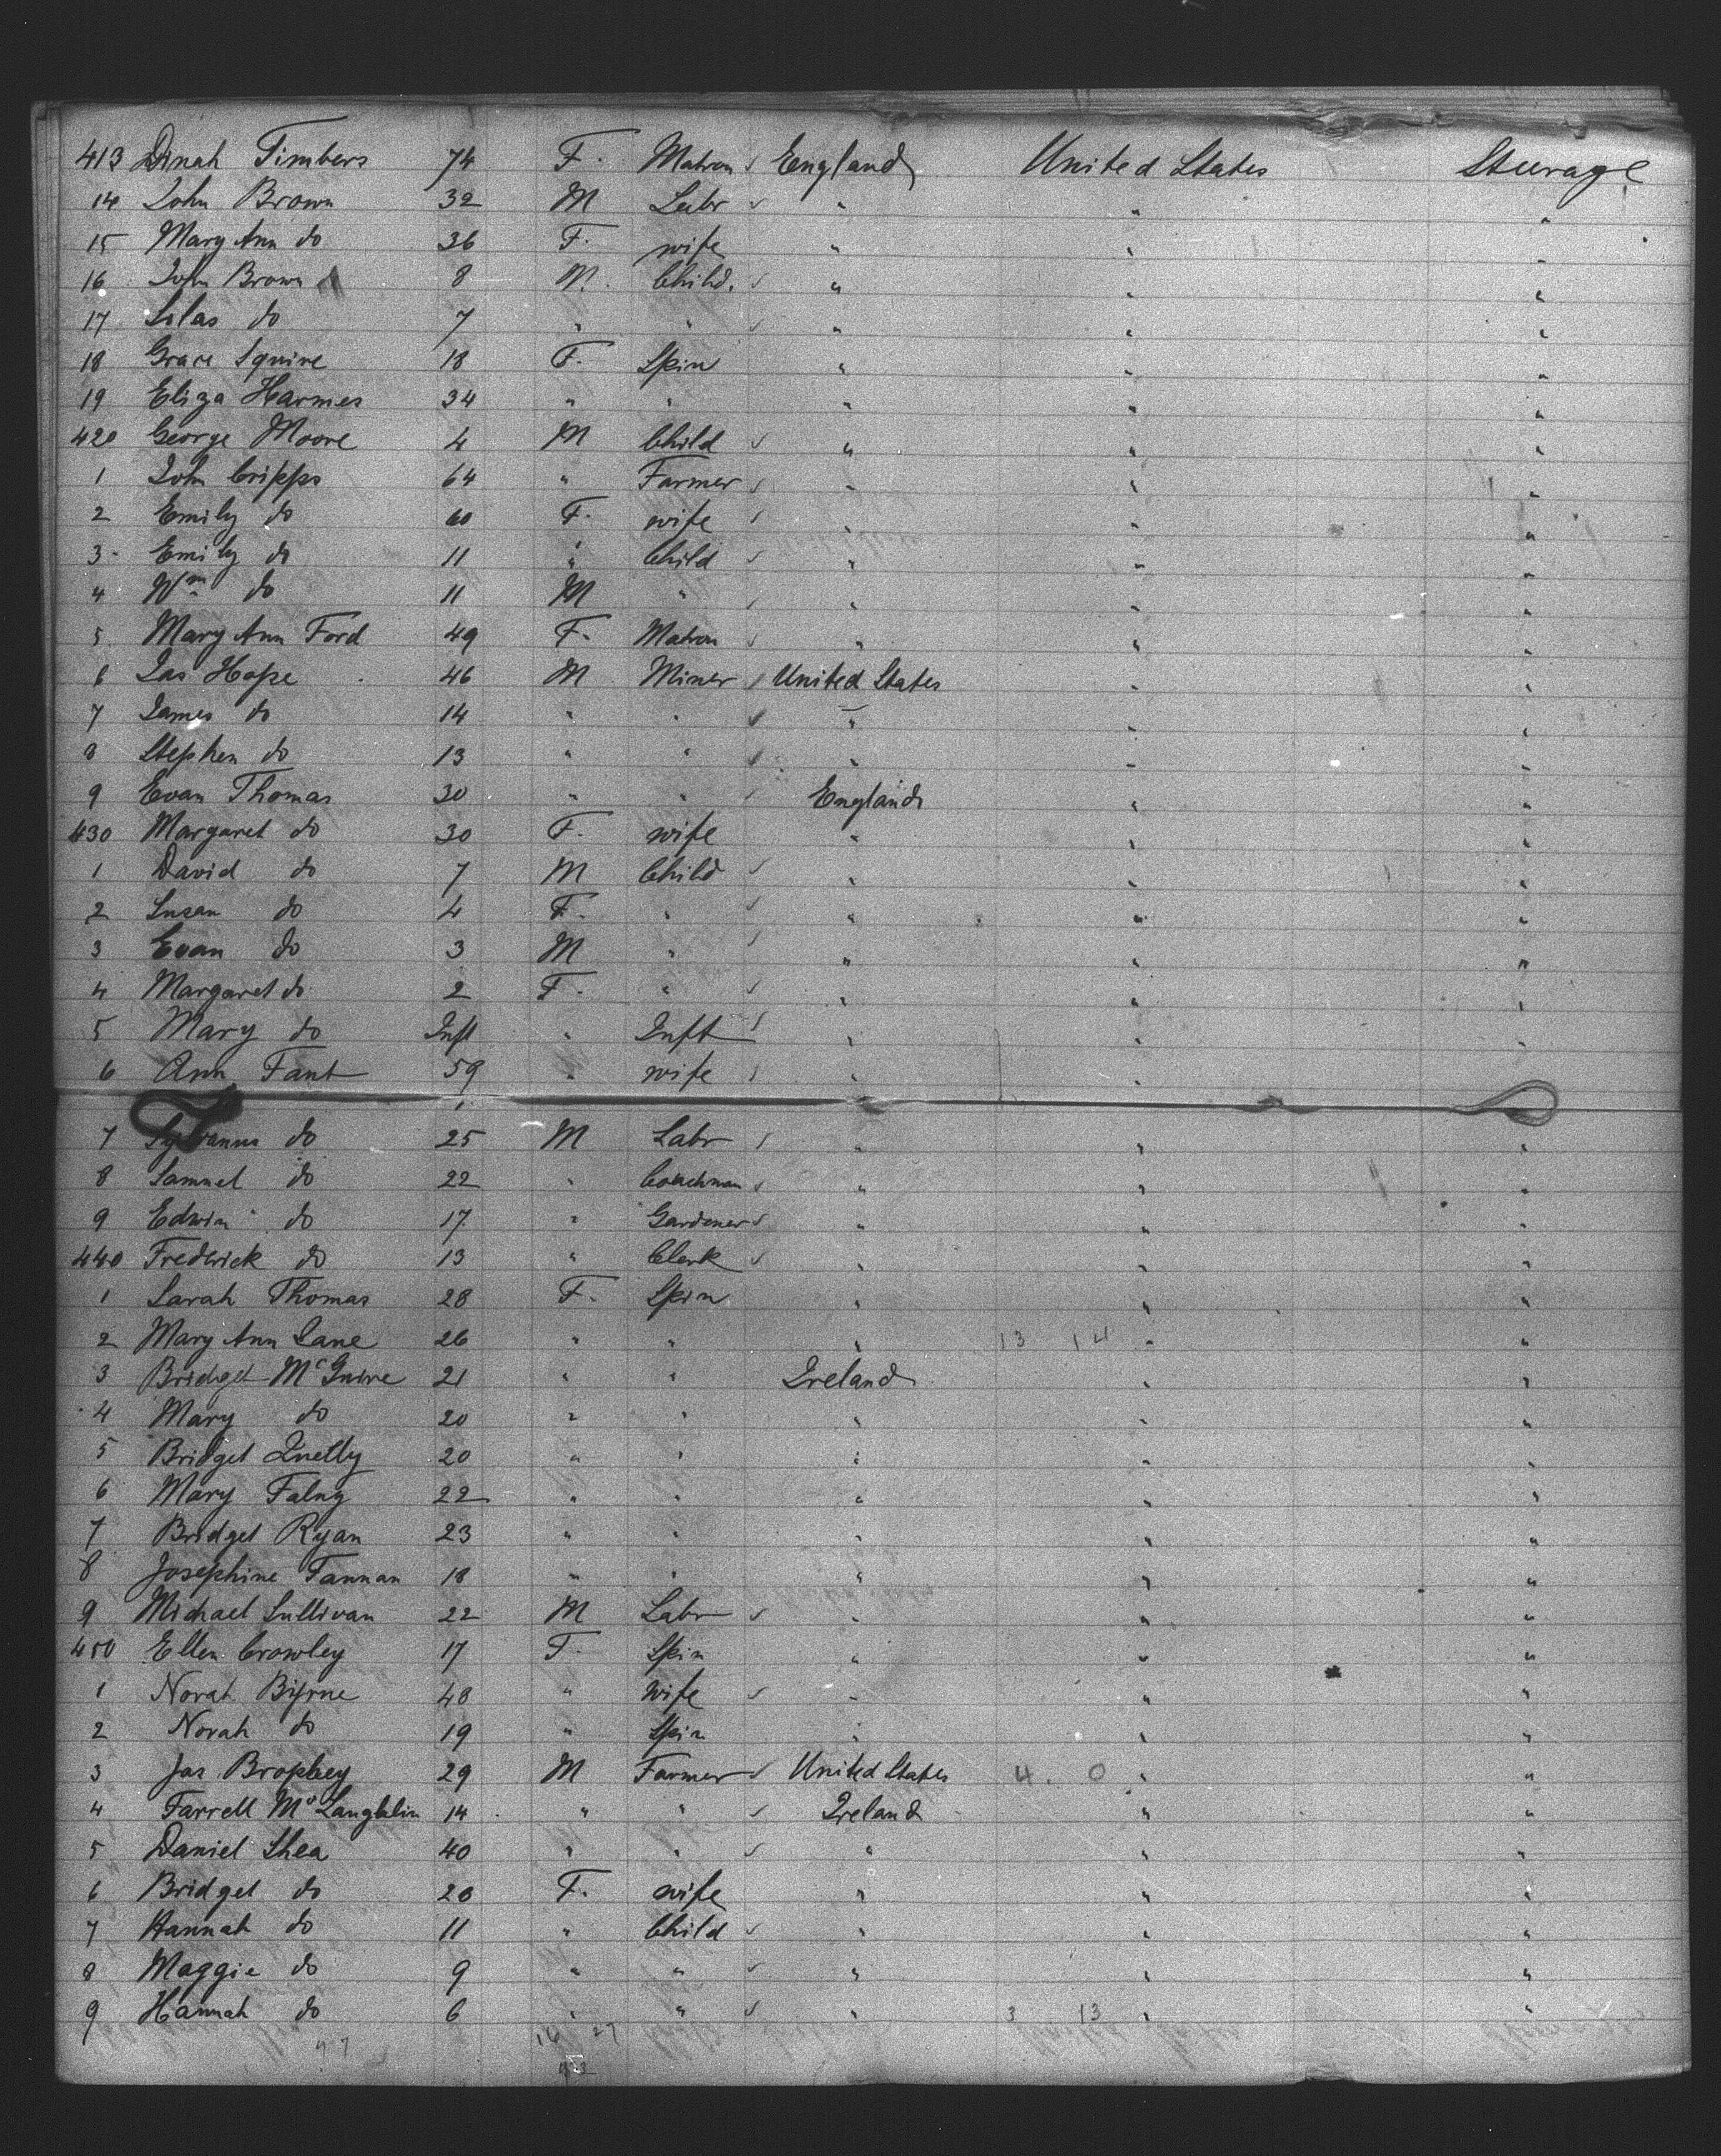 413 Dinah Timbers 74 F. Matron ✓ England United States Steerage
14 John Brown 32 M Labr ✓ " " "
15 Mary Ann do 36 F. wife " " "
16 John Brown 8 M. Child. ✓ " " "
17 Silas do 7 " " ✓ " " "
18 Grace Squire 18 F. Spin " " "
19 Eliza Harmes 34 " " " " "
420 George Moore 4 M Child ✓ " " "
1 John Cripps 64 " Farmer ✓ " " "
2 Emily do 60 F. wife ✓ " " "
3 Emily do 11 " Child ✓ " " "
4 Wm do 11 M " ✓ " " "
5 Mary Ann Ford 49 F. Matron ✓ " " "
6 Jas Hope 46 M Miner ✓ United States " "
7 James do 14 " " ✓ " " "
8 Stephen do 13 " " ✓ " " "
9 Evan Thomas 30 " " ✓ England " "
430 Margaret do 30 F. wife " " "
1 David do 7 M Child ✓ " " "
2 Susan do 4 F. " ✓ " " "
3 Evan do 3 M " ✓ " " "
4 Margaret do 2 F. " ✓ " " "
5 Mary do Inft " Inft ✓ " " "
6 Ann Fant 59 " wife ✓ " " "
7 Sylvanus do 25 M Labr ✓ " " "
8 Samuel do 22 " Coachman ✓ " " "
9 Edwin do 17 " Gardener ✓ " " "
440 Frederick do 13 " Clerk ✓ " " "
1 Sarah Thomas 28 F. Spin " " "
2 Mary Ann Lane 26 " " " 13 14 " "
3 Bridget McGuire 21 " " Ireland " "
4 Mary do 20 " " " " "
5 Bridget 20 " " " " "
6 Mary Falny 22 " " " " "
7 Bridget Ryan 23 " " " " "
8 Josephine Fannan 18 " " " " "
9 Michael Sullivan 22 M Labr ✓ " " "
450 Ellen Crowley 17 F. Spin " " "
1 Norah Byrne 48 " Wife ✓ " " "
2 Norah do 19 " Spin " " "
3 Jas Brophey 29 M Farmer ✓ United States 4. 0 " "
4 Farrell McLaughlin 14 " " ✓ Ireland " "
5 Daniel Shea 40 " " ✓ " " "
6 Bridget do 20 F. wife " " "
7 Hannah do 11 " Child ✓ " " "
8 Maggie do 9 " " ✓ " " "
9 Hannah do 6 " " ✓ " 3 13 " "
97 16 27